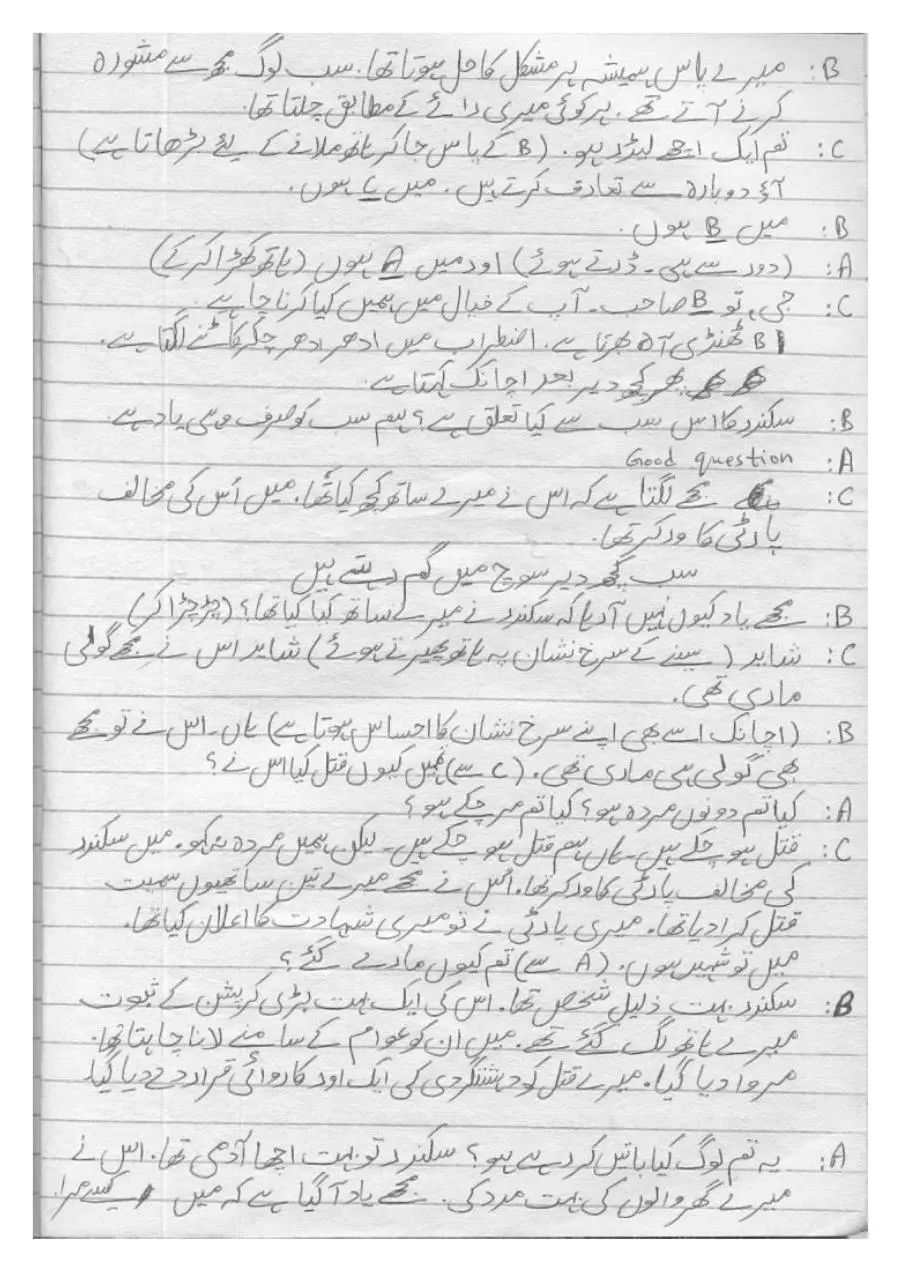 B: میرے پاس ہمیشہ ہر مشکل کا حل ہوتا تھا۔ سب لوگ مجھ سے مشورہ
کرنے آتے تھے۔ ہر کوئی میری رائے کے مطابق چلتا تھا۔
C: تم ایک اچھے لیڈر ہو۔ (B کے پاس جا کر ہاتھ ملانے کے لیئے بڑھاتا ہے)
آؤ دوبارہ سے تعارف کرتے ہیں۔ میں C ہوں۔
B: میں B ہوں۔
A: (دور سے ہی۔ ڈرتے ہوئے) اور میں A ہوں (ہاتھ کھڑا کر کے)
C: جی، تو B صاحب۔ آپ کے خیال میں ہمیں کیا کرنا چاہیے۔
B ٹھنڈی آہ بھرتا ہے۔ اضطراب میں ادھر ادھر چکر کاٹنے لگتا ہے۔
پھر کچھ دیر بعد اچانک کہتا ہے۔
B: سکندر کا اس سب سے کیا تعلق ہے؟ ہم سب کو صرف وہی یاد ہے۔
A: Good question
C: مجھے لگتا ہے کہ اس نے میرے ساتھ کچھ کیا تھا۔ میں اُس کی مخالف
پارٹی کا ورکر تھا۔
سب کچھ دیر سوچ میں گم رہتے ہیں
B: مجھے یاد کیوں نہیں آ رہا کہ سکندر نے میرے ساتھ کیا کیا تھا؟ (چڑچڑا کر)
C: شاید (سینے کے سرخ نشان پہ ہاتھ پھیرتے ہوئے) شاید اس نے مجھے گولی
ماری تھی۔
B: (اچانک اسے بھی اپنے سرخ نشان کا احساس ہوتا ہے) ہاں۔ اس نے تو مجھے
بھی گولی ہی ماری تھی۔ (C سے) تمہیں کیوں قتل کیا اس نے؟
A: کیا تم دونوں مردہ ہو؟ کیا تم مر چکے ہو؟
C: قتل ہو چکے ہیں۔ ہاں ہم قتل ہو چکے ہیں۔ لیکن ہمیں مردہ نہ کہو۔ میں سکندر
کی مخالف پارٹی کا ورکر تھا۔ اُس نے مجھے میرے تین ساتھیوں سمیت
قتل کرا دیا تھا۔ میری پارٹی نے تو میری شہادت کا اعلان کیا تھا۔
میں تو شہید ہوں۔ (A سے) تم کیوں مارے گئے؟
B: سکندر بہت ذلیل شخص تھا۔ اس کی ایک بہت بڑی کرپشن کے ثبوت
میرے ہاتھ لگ گئے تھے۔ میں ان کو عوام کے سامنے لانا چاہتا تھا۔
مروا دیا گیا۔ میرے قتل کو دہشتگردی کی ایک اور کاروائی قرار دے دیا گیا۔
A: یہ تم لوگ کیا باتیں کر رہے ہو؟ سکندر تو بہت اچھا آدمی تھا۔ اس نے
میرے گھر والوں کی بہت مدد کی۔ مجھے یاد آ گیا ہے کہ میں کیسے مرا۔